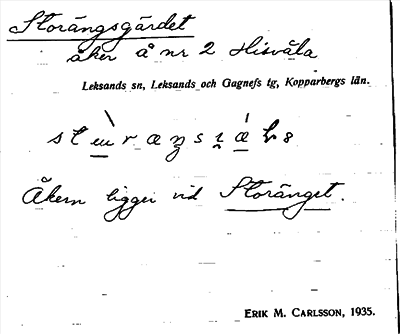 Storängsgärdet
åker å nr 2 Hisvåla
Leksands sn, Leksands och Gagnefs tg, Kopparbergs län.
Åkern ligger vid Storänget.
ERIK M. CARLSSON, 1935.